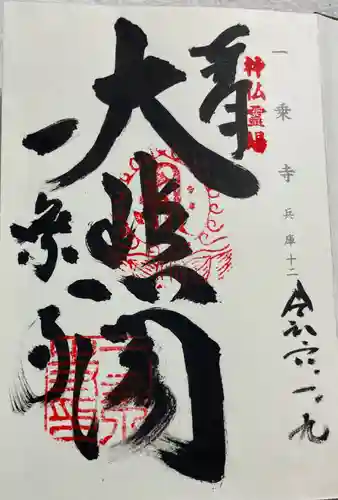 一乗寺 兵庫十二
奉
神仏霊場
大悲閣
一乗寺
令和六.一.九